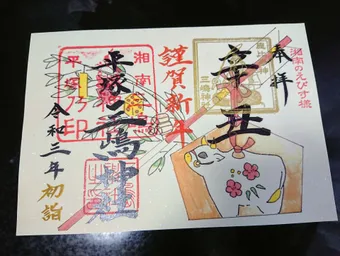 湘南のえびす様
奉拝
辛丑
三嶋神社
謹賀新年
湘南
平塚
平塚三嶋神社
令和三年 初詣